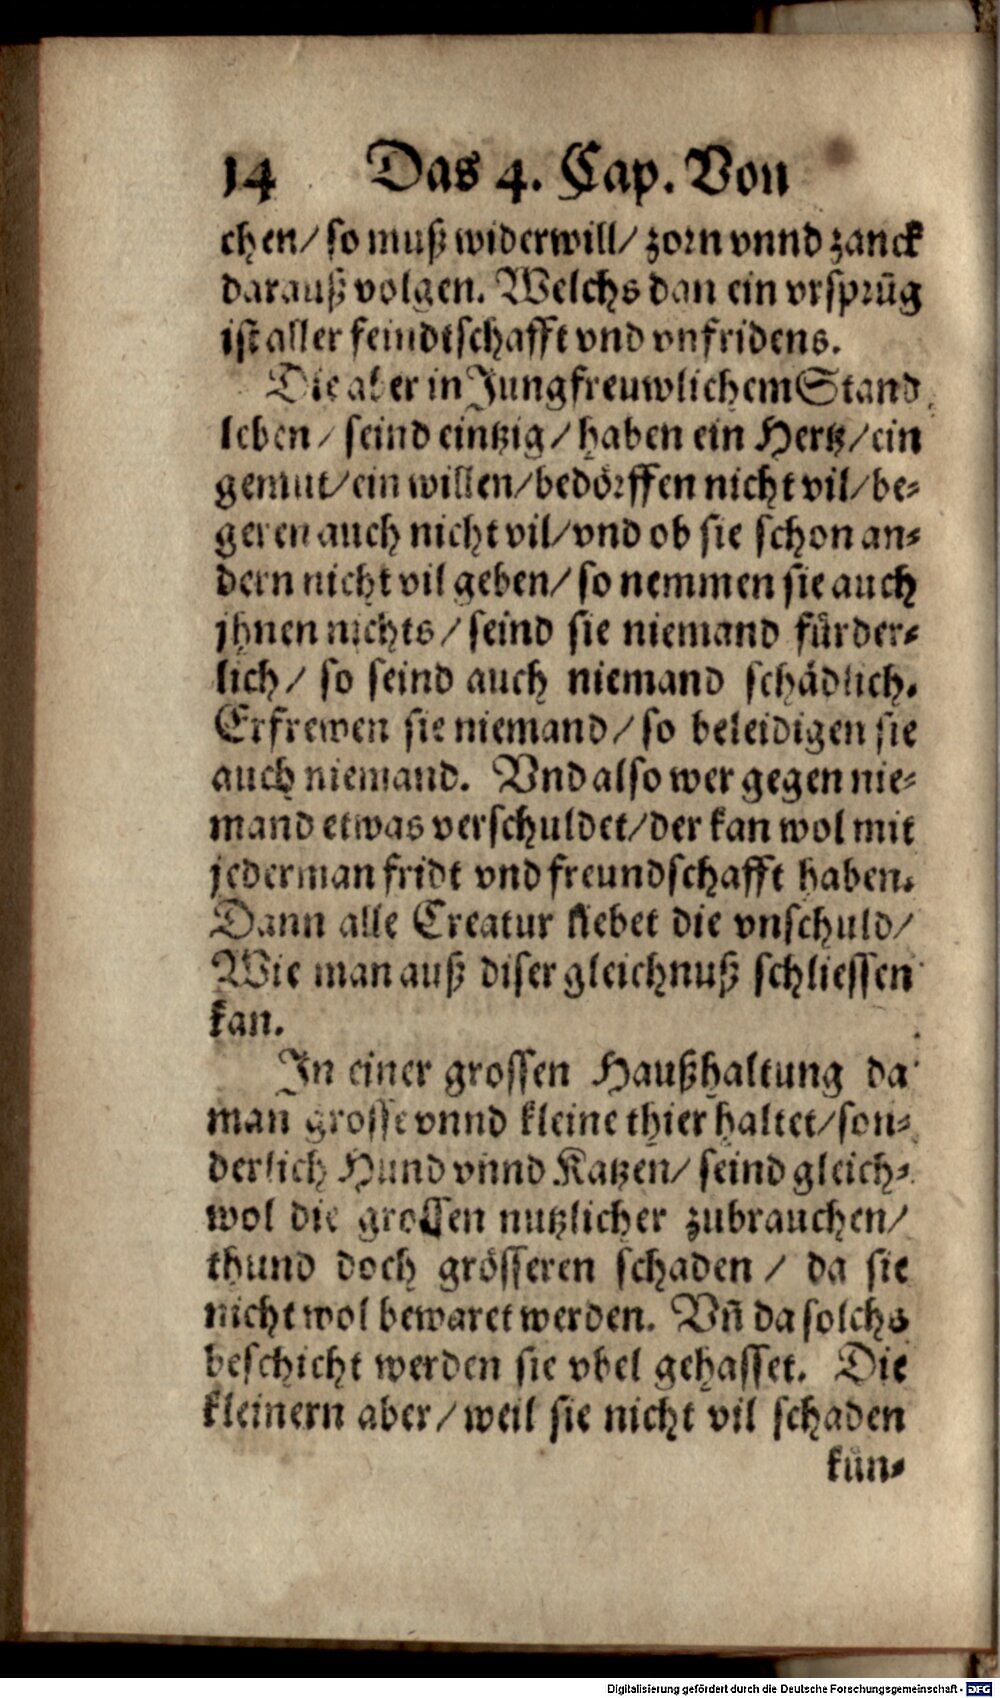 14 Das 4. Cap. Von
chen/ so muß widerwill/ zorn vnnd zanck
darauß volgen. Welchs dan ein vrsprūg
ist aller feindtschafft vnd vnfridens.
Die aber in Jungfreuwlichem Stand
leben/ seind eintzig/ haben ein Hertz/ ein
gemut/ ein willen/ bedörffen nicht vil/ be-
geren auch nicht vil/ vnd ob sie schon an-
dern nicht vil geben/ so nemmen sie auch
jhnen nichts/ seind sie niemand fürder-
lich/ so seind auch niemand schädlich.
Erfrewen sie niemand/ so beleidigen sie
auch niemand. Vnd also wer gegen nie-
mand etwas verschuldet/ der kan wol mit
jederman fridt vnd freundschafft haben.
Dann alle Creatur liebet die vnschuld/
Wie man auß diser gleichnuß schliessen
kan.
In einer grossen Haußhaltung da
man grosse vnnd kleine thier haltet/ son-
derlich Hund vnnd Katzen/ seind gleich-
wol die grossen nutzlicher zubrauchen/
thund doch grösseren schaden/ da sie
nicht wol bewaret werden. Vñ da solchs
beschicht werden sie vbel gehasset. Die
kleinern aber/ weil sie nicht vil schaden
kün-
Digitalisierung gefördert durch die Deutsche Forschungsgemeinschaft - DFG